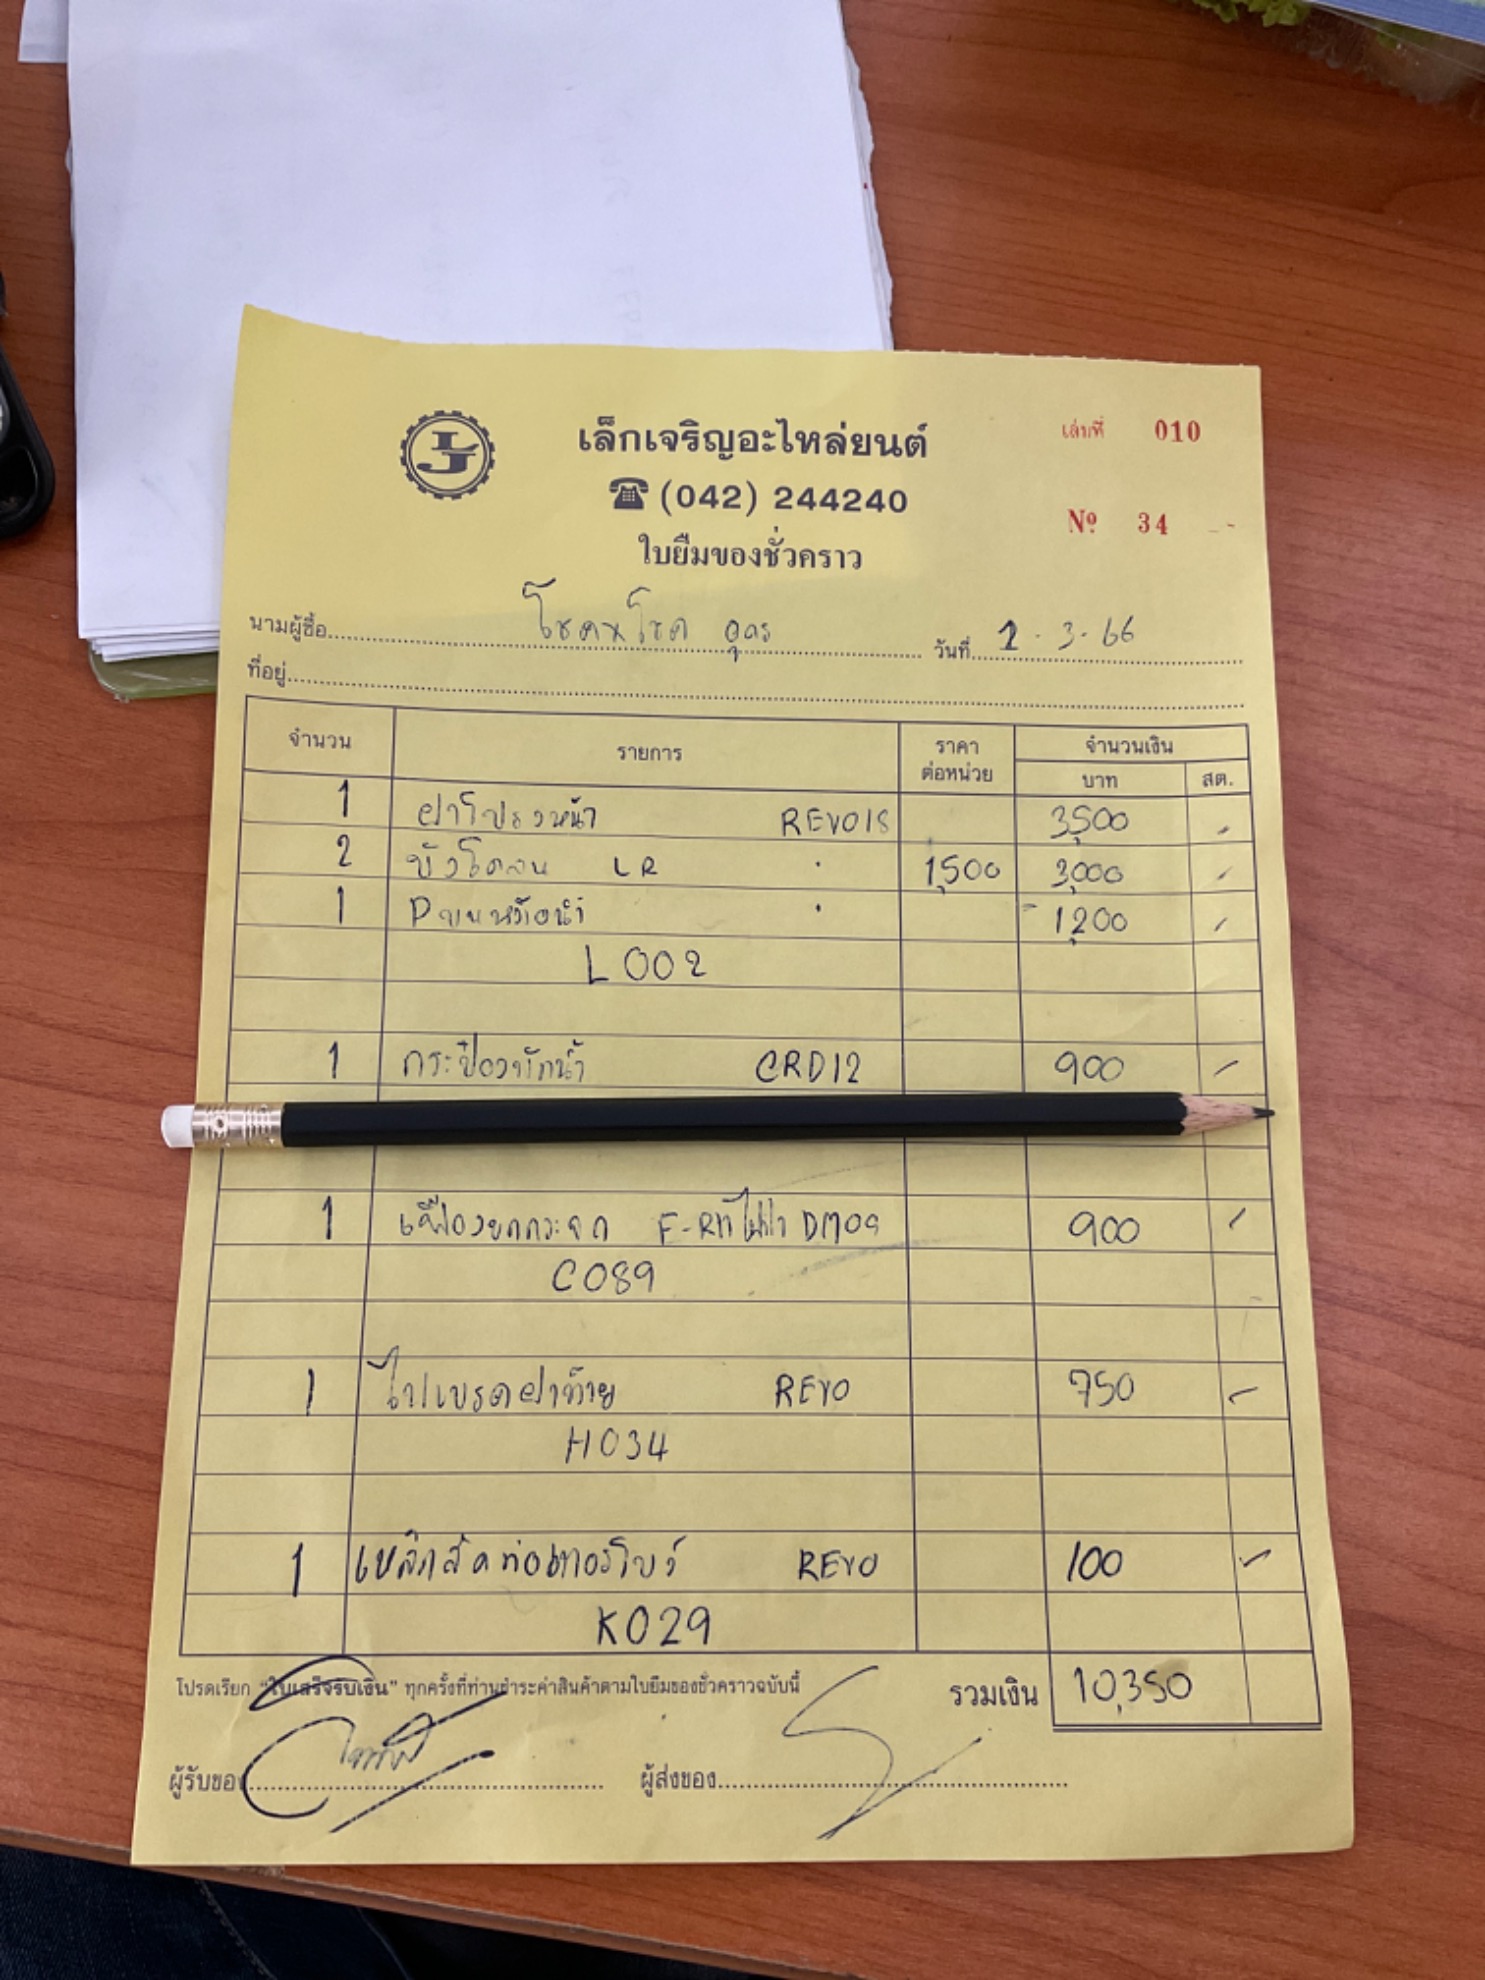 เล็กเจริญอะไหล่ยนต์
เล่มที่ 010
(042) 244240
Nº 34
ใบยืมของชั่วคราว
นามผู้ซื้อ โชค ๙ โชค อุดร วันที่ 2-3-66
ที่อยู่
จำนวน รายการ ราคาต่อหน่วย จำนวนเงิน
บาท สต.
1 ฝาโปรงหน้า REVO15 3,500 -
2 บังโคลน LR " 1,500 3,000 -
1 " 1,200 -
L002
1 กระป๋องพักน้ำ CRD12 900 -
1 เฟืองยกกระจก F-R ไฟฟ้า 900 -
C089
1 ไฟเบรคฝาท้าย REVO 750 -
H034
1 เหล็กรัดท่อเทอร์โบว์ REVO 100 -
K029
โปรดเรียก "ใบเสร็จรับเงิน" ทุกครั้งที่ท่านชำระค่าสินค้าตามใบยืมของชั่วคราวฉบับนี้
รวมเงิน 10,350
ผู้รับของ ผู้ส่งของ